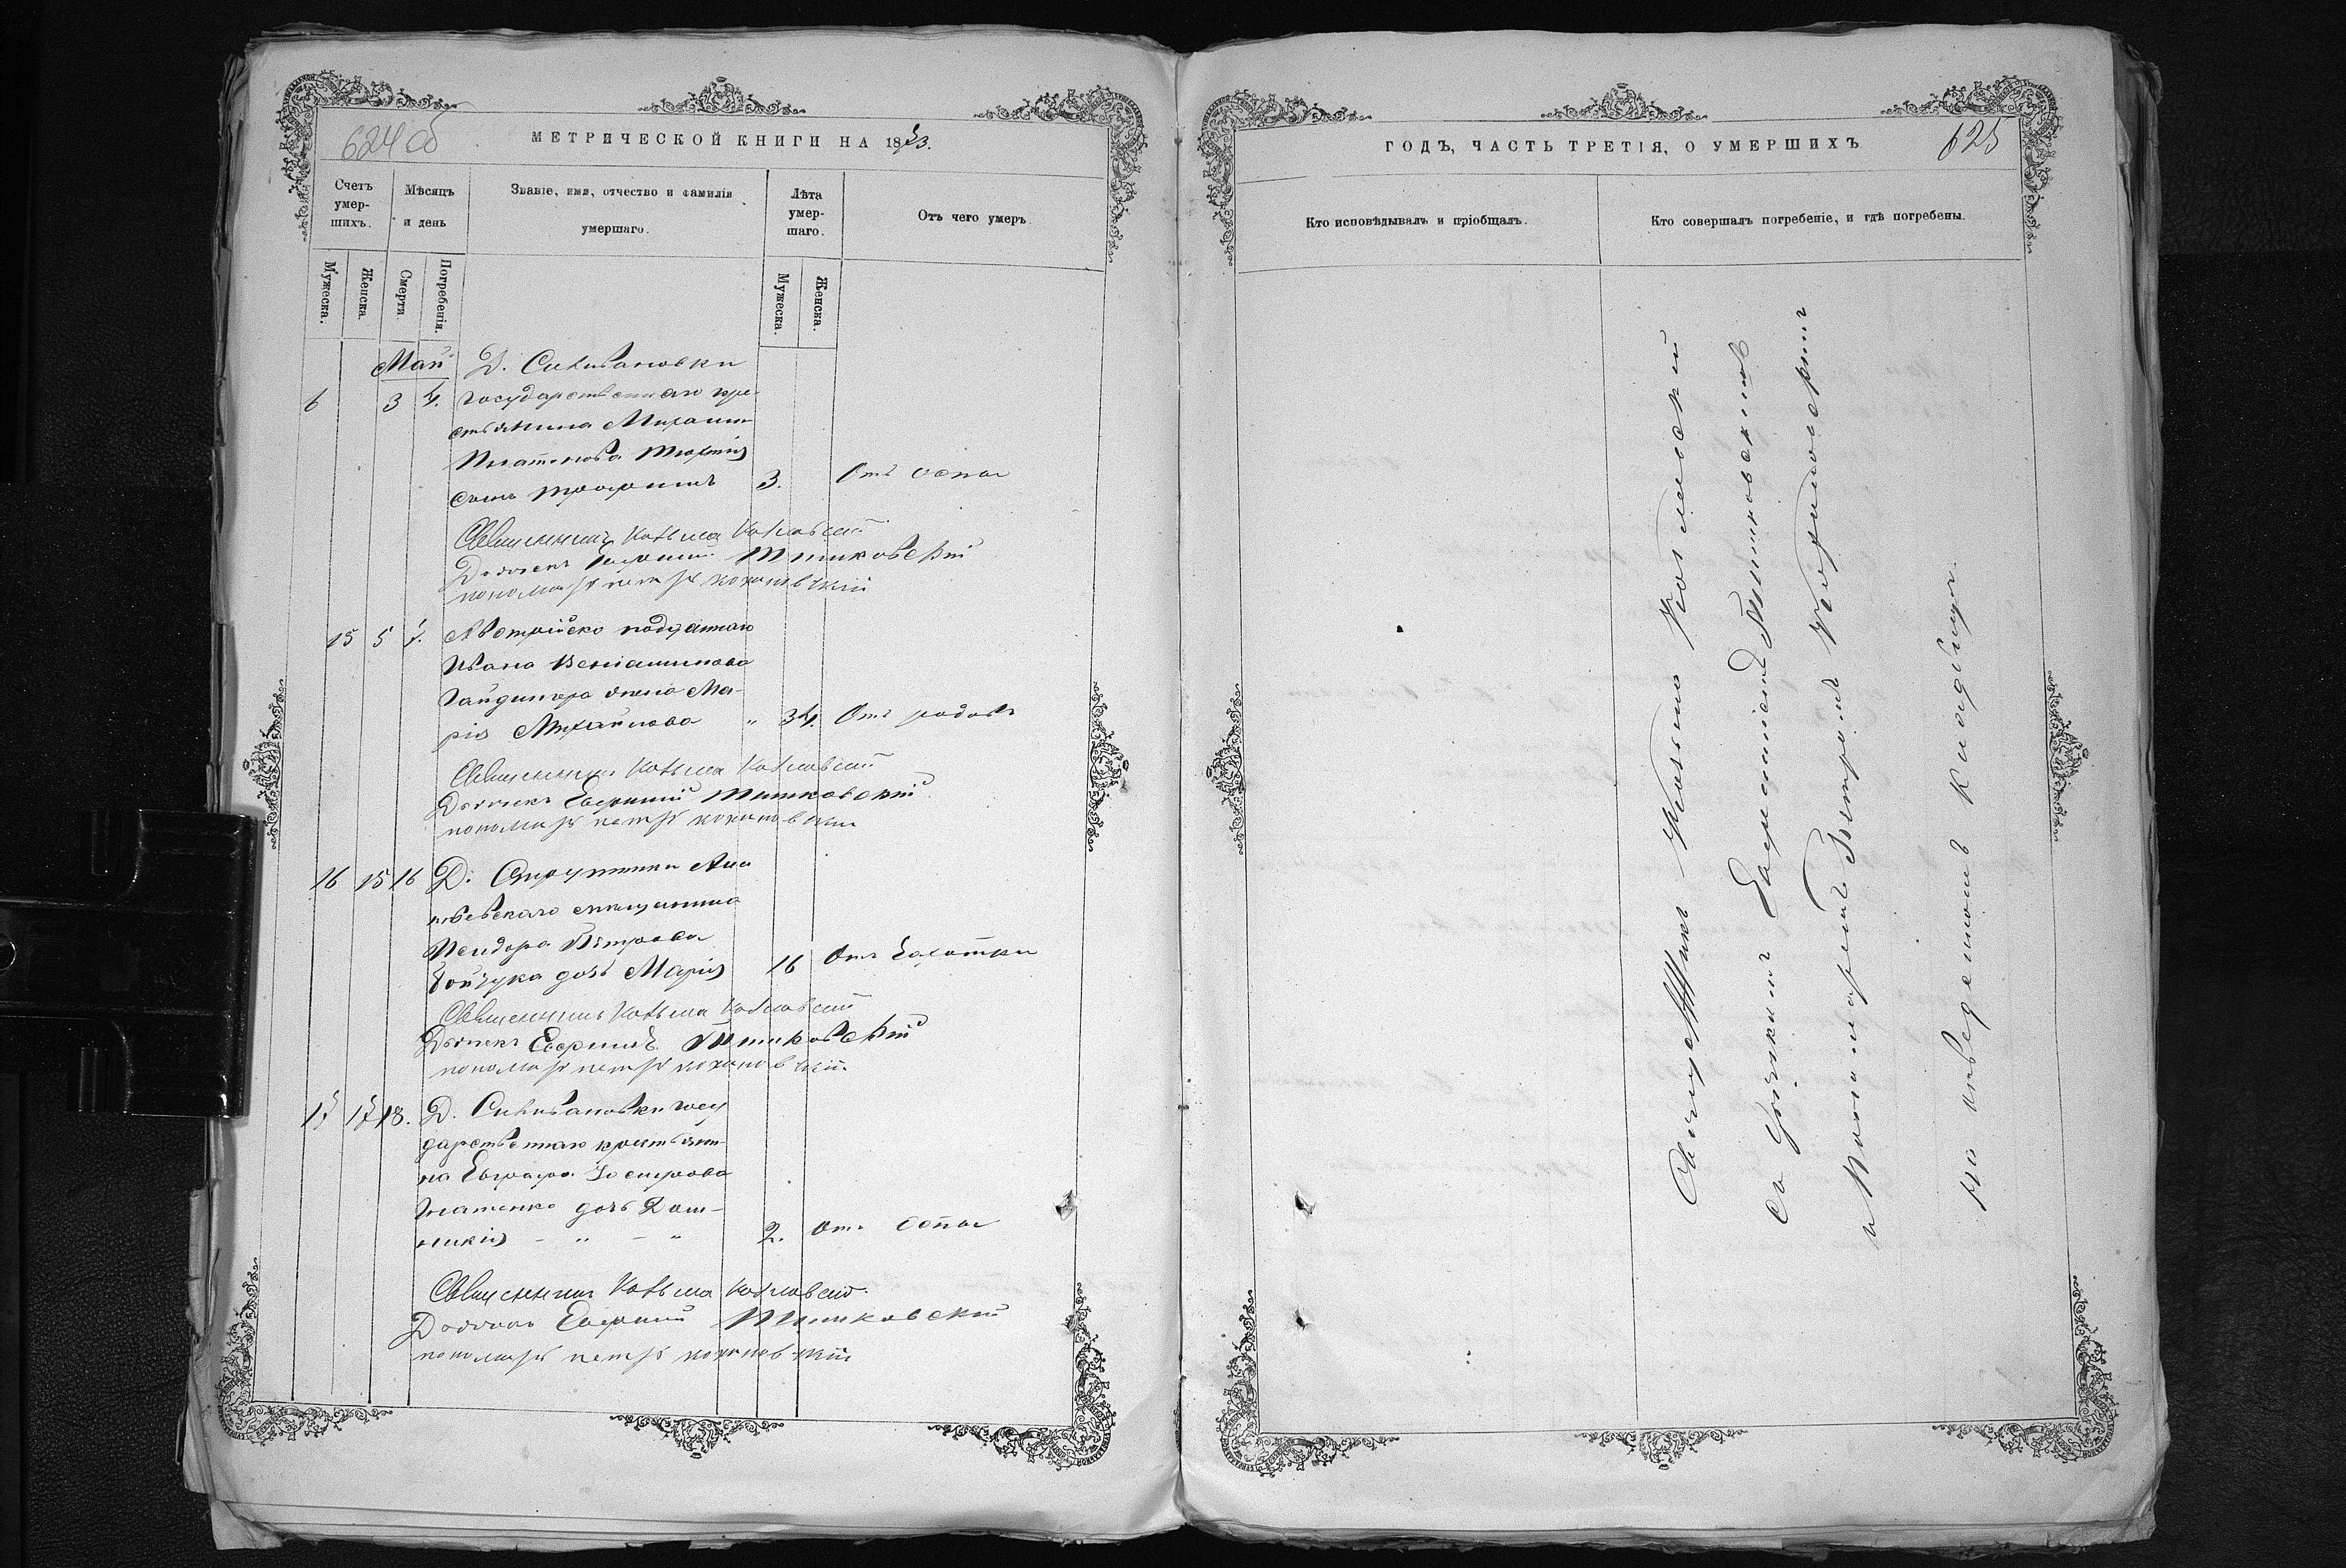 624 об
МЕТРИЧЕСКОЙ КНИГИ НА 1873.
Счетъ умер-шихъ.
Мѣсяцъ и день
Званіе, имя, отчество и фамилія умершаго.
Лѣта умер-шаго.
Отъ чего умеръ.
Мужеска.
Женска.
Смерти.
Погребенія.
Мужеска.
Женска.
Май
Д. Селивановки
6 3 4. Государственнаго кре-
стьянина Михаила
Игнатьева
сынъ Трофимъ 3. Отъ оспы
Священникъ Козьма Козловскій
Дьячекъ Евфимій Тишковскій
пономарь петръ кохановскій
15 5 7. Австрійско подданнаго
Ивана Веніаминова
Гайдингера жена Ма-
рія Михайлова " 34. Отъ родовъ
Священникъ Козьма Козловскій
Дьячекъ Евфимій Тишковскій
пономарь петръ кохановскій
16 15 16 Д. Ана
ньевскаго мѣщанина
Исидора Петрова
Бойчука дочь Марія 16 Отъ чахотки
Священникъ Козьма Козловскій
Дьячекъ Евфимій Тишковскій
пономарь петръ кохановскій
17 17 18. Д. Селивановки госу
дарственнаго крестьяни-
на Евграфа
Игнатенко дочь Дом-
никія - " - " 2. Отъ оспы
Священникъ Козьма Козловскій
Дьячекъ Евфимій Тишковскій
пономарь петръ кохановскій
ГОДЪ, ЧАСТЬ ТРЕТІЯ, О УМЕРШИХЪ
625
Кто исповѣдывалъ и пріобщалъ.
Кто совершалъ погребеніе, и гдѣ погребены.
Священникъ Козьма Козловскій
съ Дьячкомъ Евфиміемъ Тишковскимъ
и Пономаремъ Петромъ Кохановскимъ
на отведенномъ кладбищѣ.